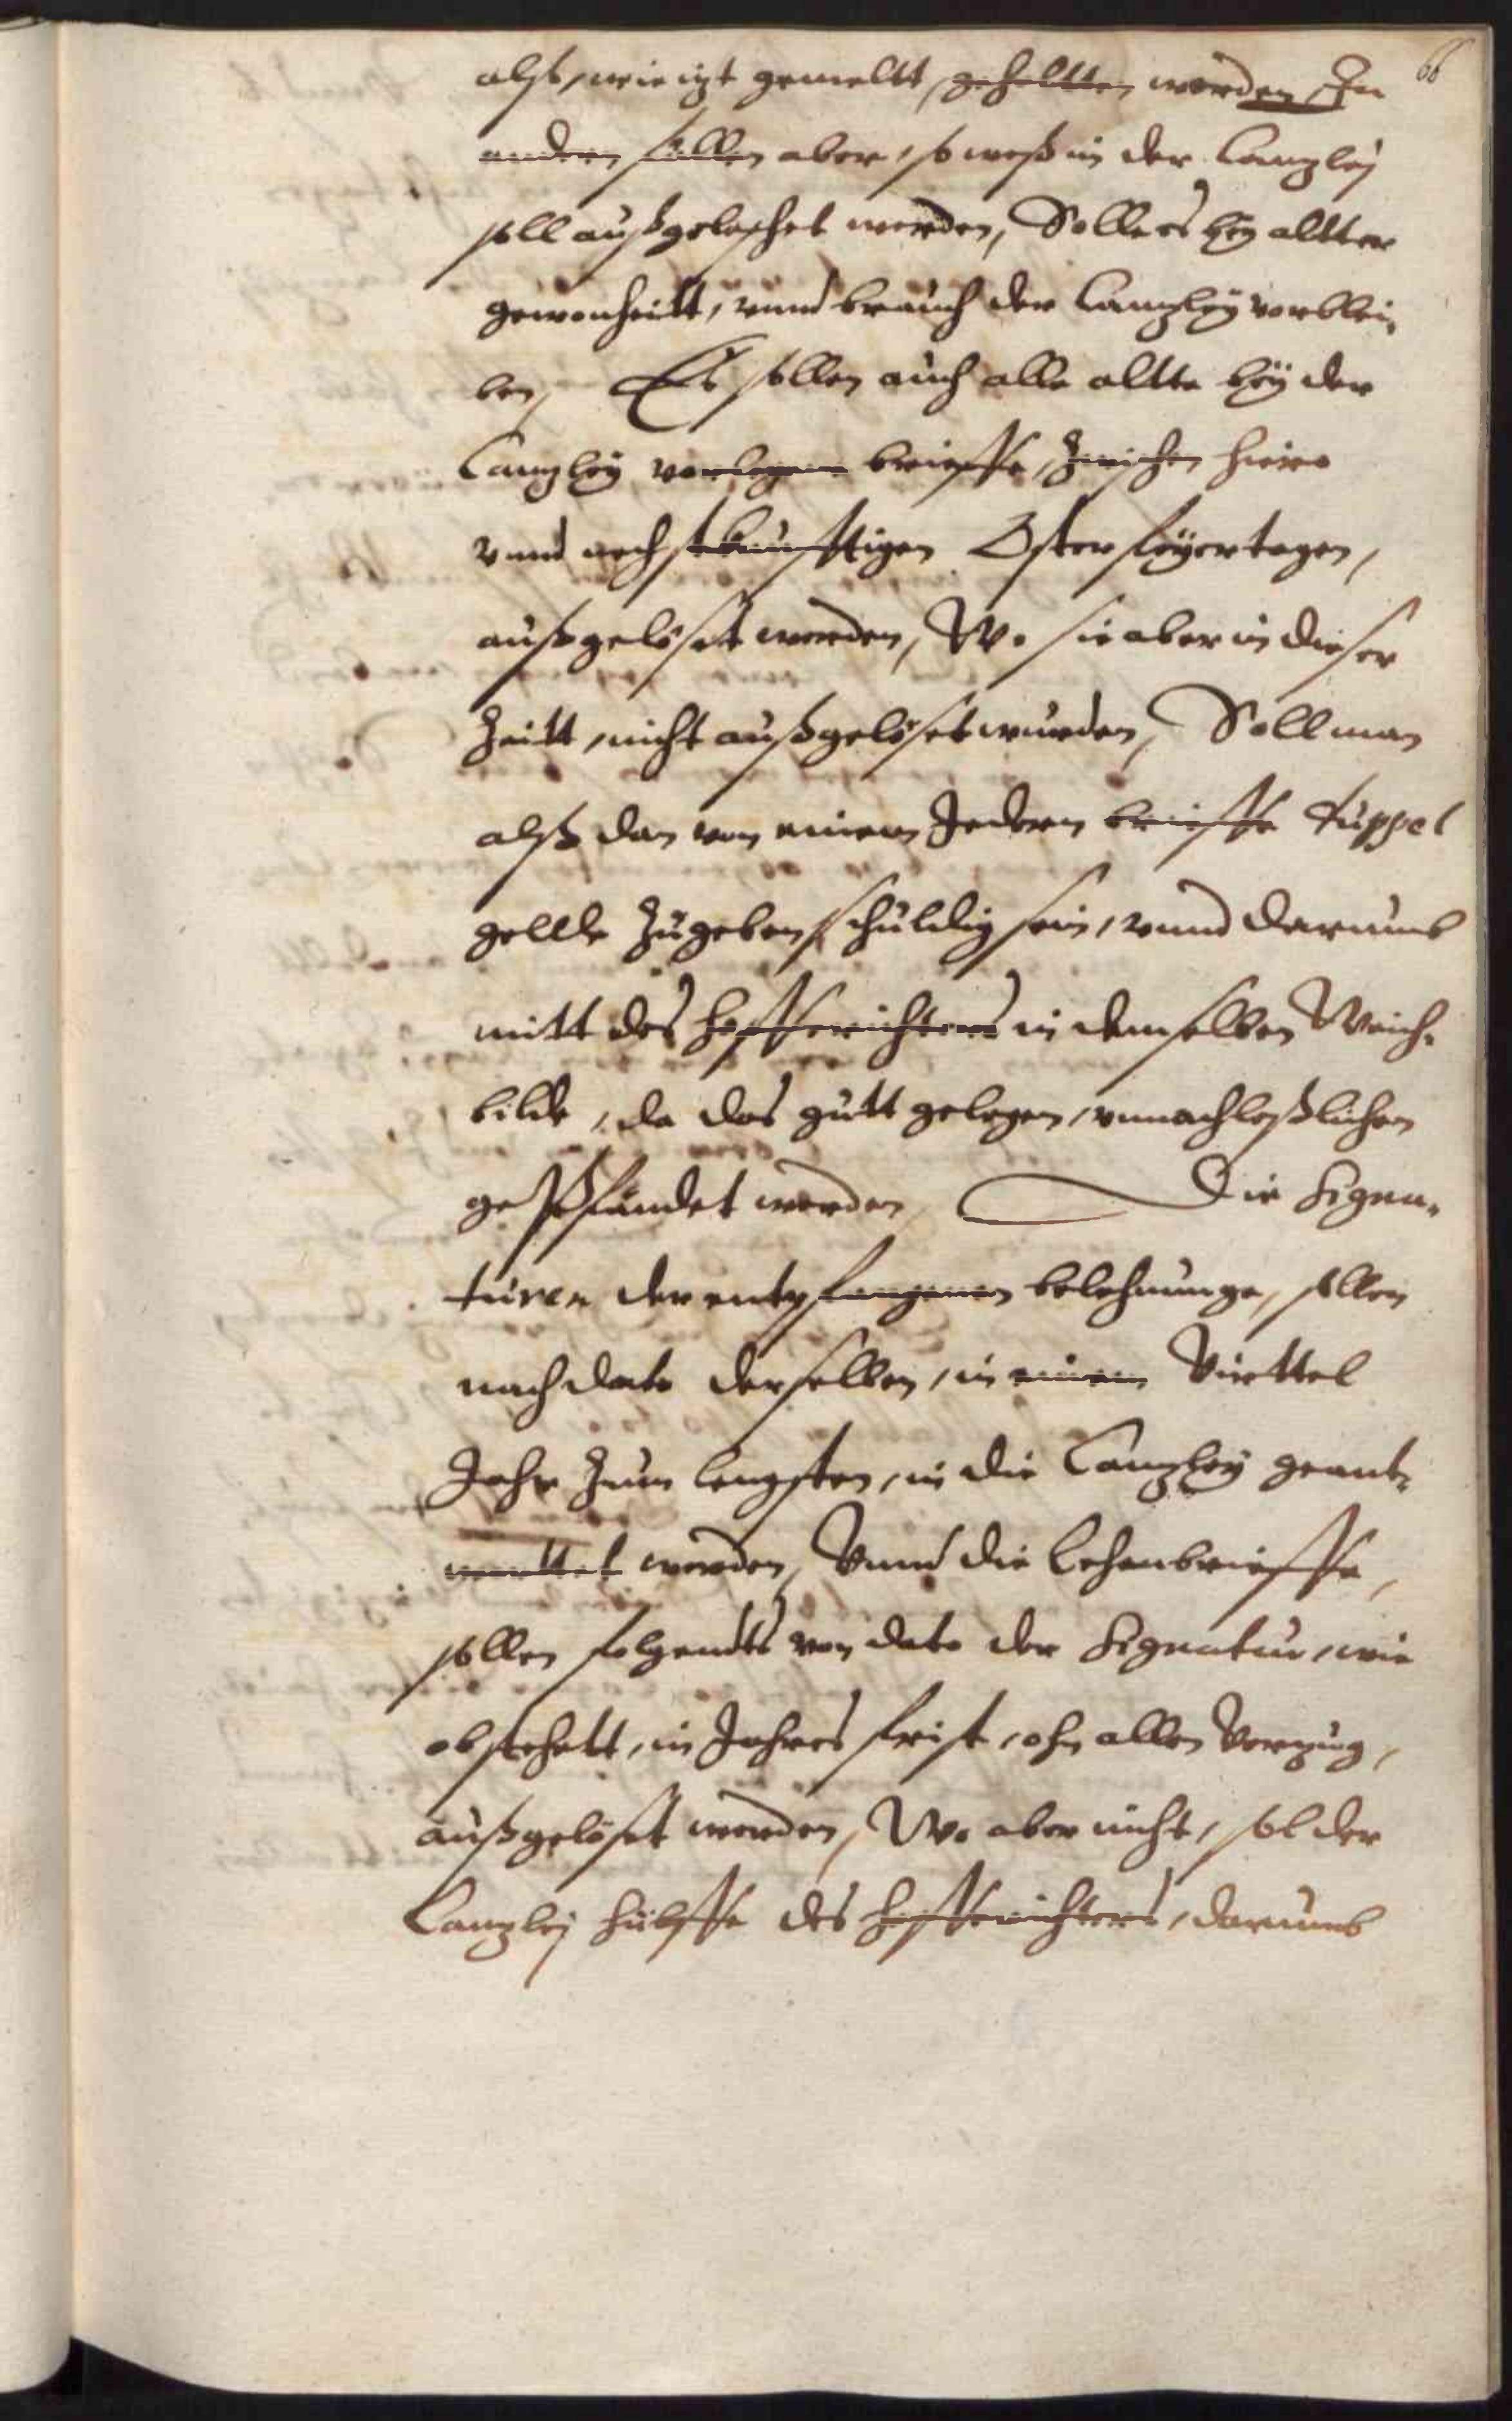 66
alß, wie izt gemeltt, gehaltten werden, In
andern fällen aber, so weß in der Canzleÿ
soll außgeleschet werden, Soll es beÿ altter
gewonheitt, vnnd brauch der Canzleÿ verblei,
ben, Es sollen auch alle altte beÿ der
Canzleÿ verlegene brieffe, zwischen hiero
vnnd nechstkunfftigen Osterfeÿertagen,
außgelöset werden, Wo sie aber in dieser
Zeitt, nicht außgelöset wurden, Soll man
alß dan von einem Jedern brieffe duppel
gellde zugeben schuldig sein, vnnd darumb
mitt des hofferichters in demselben Weich,
bilde, da das gutt gelegen, vnnachleßlichen
gepfandet werden, Die Signa,
turen der entpfangenen belehnunge, sollen
nach dato derselben, in einem Virttel
Jahr zum lengsten, in die Canzleÿ geant,
werttet werden, Vnnd die Lehenbrieffe,
sollen folgendts von dato der Signatur, wie
obstehett, in Jahres frist, ohn allen Verzug,
außgelöset werden, Wo aber nicht, sol der
Canzleÿ hülffe des hofferichters, darumb